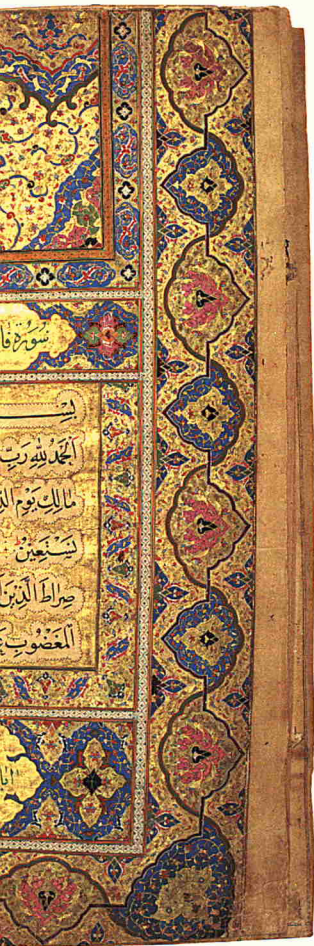 سُورَةُ فَا
بِسْـ
اَلْحَمْدُ لِلّٰهِ رَبِّ
مَالِكِ يَوْمِ الدّ
نَسْتَعِينُ
صِرَاطَ الَّذِينَ
الْمَغْضُوبِ